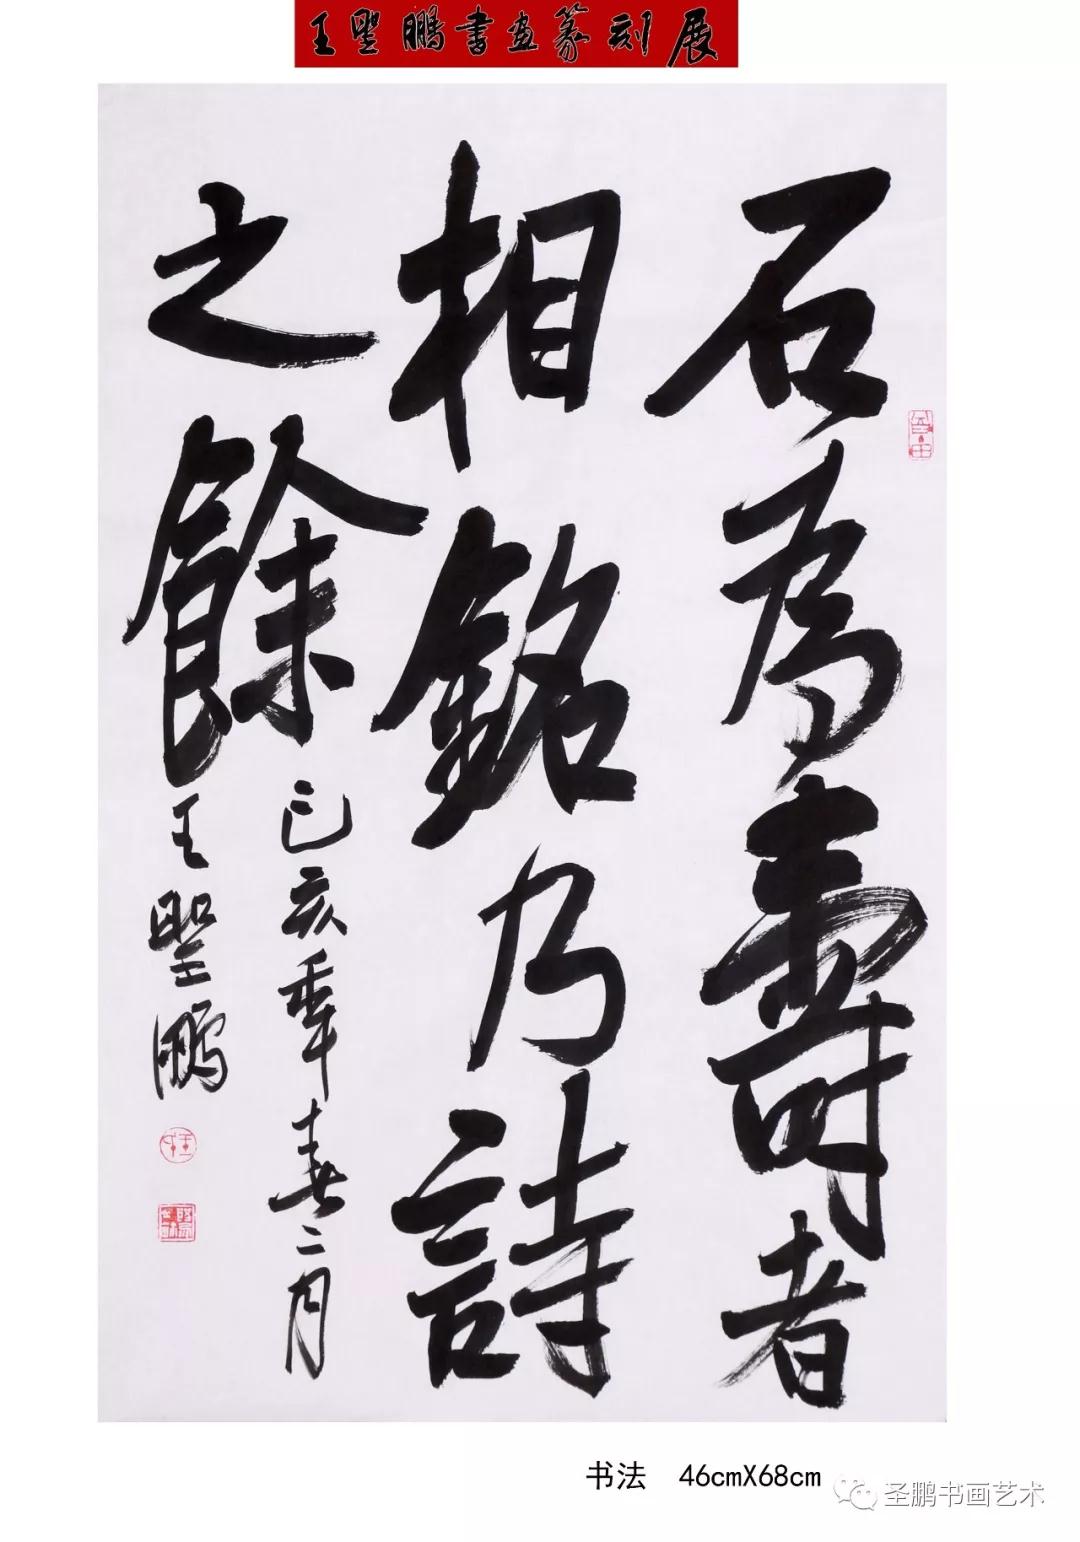 王聖鵬書画篆刻展
石為壽者
相銘乃詩
之餘
己亥年春二月
王聖鵬
书法 46cmX68cm
圣鹏书画艺术